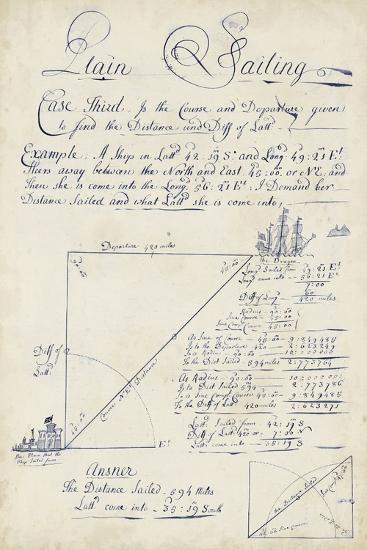 Plain Sailing
Case Third. Is the Course and Departure given
to find the Distance and Diff of Latt.d
Example: A Ship in Latt.d 42..19 S.o and Long.d 49:21 E.t
Steers away between the North and East 45:00. or NE and
Then she is come into the Long.d 56:21 E.t: I Demand her
Distance Sailed and what Latt.d she is come into,
Departure 420 miles
The Dragon
Long.d Sailed from 49:21 E.t
Long.d come into 56:21 E.t
7:00
60
Diff of Long.d 420 miles
45:00
Radius 90:00
Sine Course 45:00
Sine Comp Course 45:00
As Sine of Course 45:00 9:849485
Is to the Departure 420 2:623249
So is Radius 90:00 10:000000
To the Dist Sailed 594 miles 2:773764
Diff of
Latt.d
Course NE Distance
As Radius 90:00 10:000000
Is to Dist Sailed 594 2:773786
So is Sine Comp Course 45:00 9:849485
To the Diff of Latt.d 420 miles 2:623271
45:00
Latt.d Sailed from 42:19 S
Diff of Latt.d 420 or 7:00 N
Latt.d come into 35:19 S
E.t
Ship Sailed from
Ansner
The Distance Sailed - 594 Miles
Latt.d come into - 35:19 South